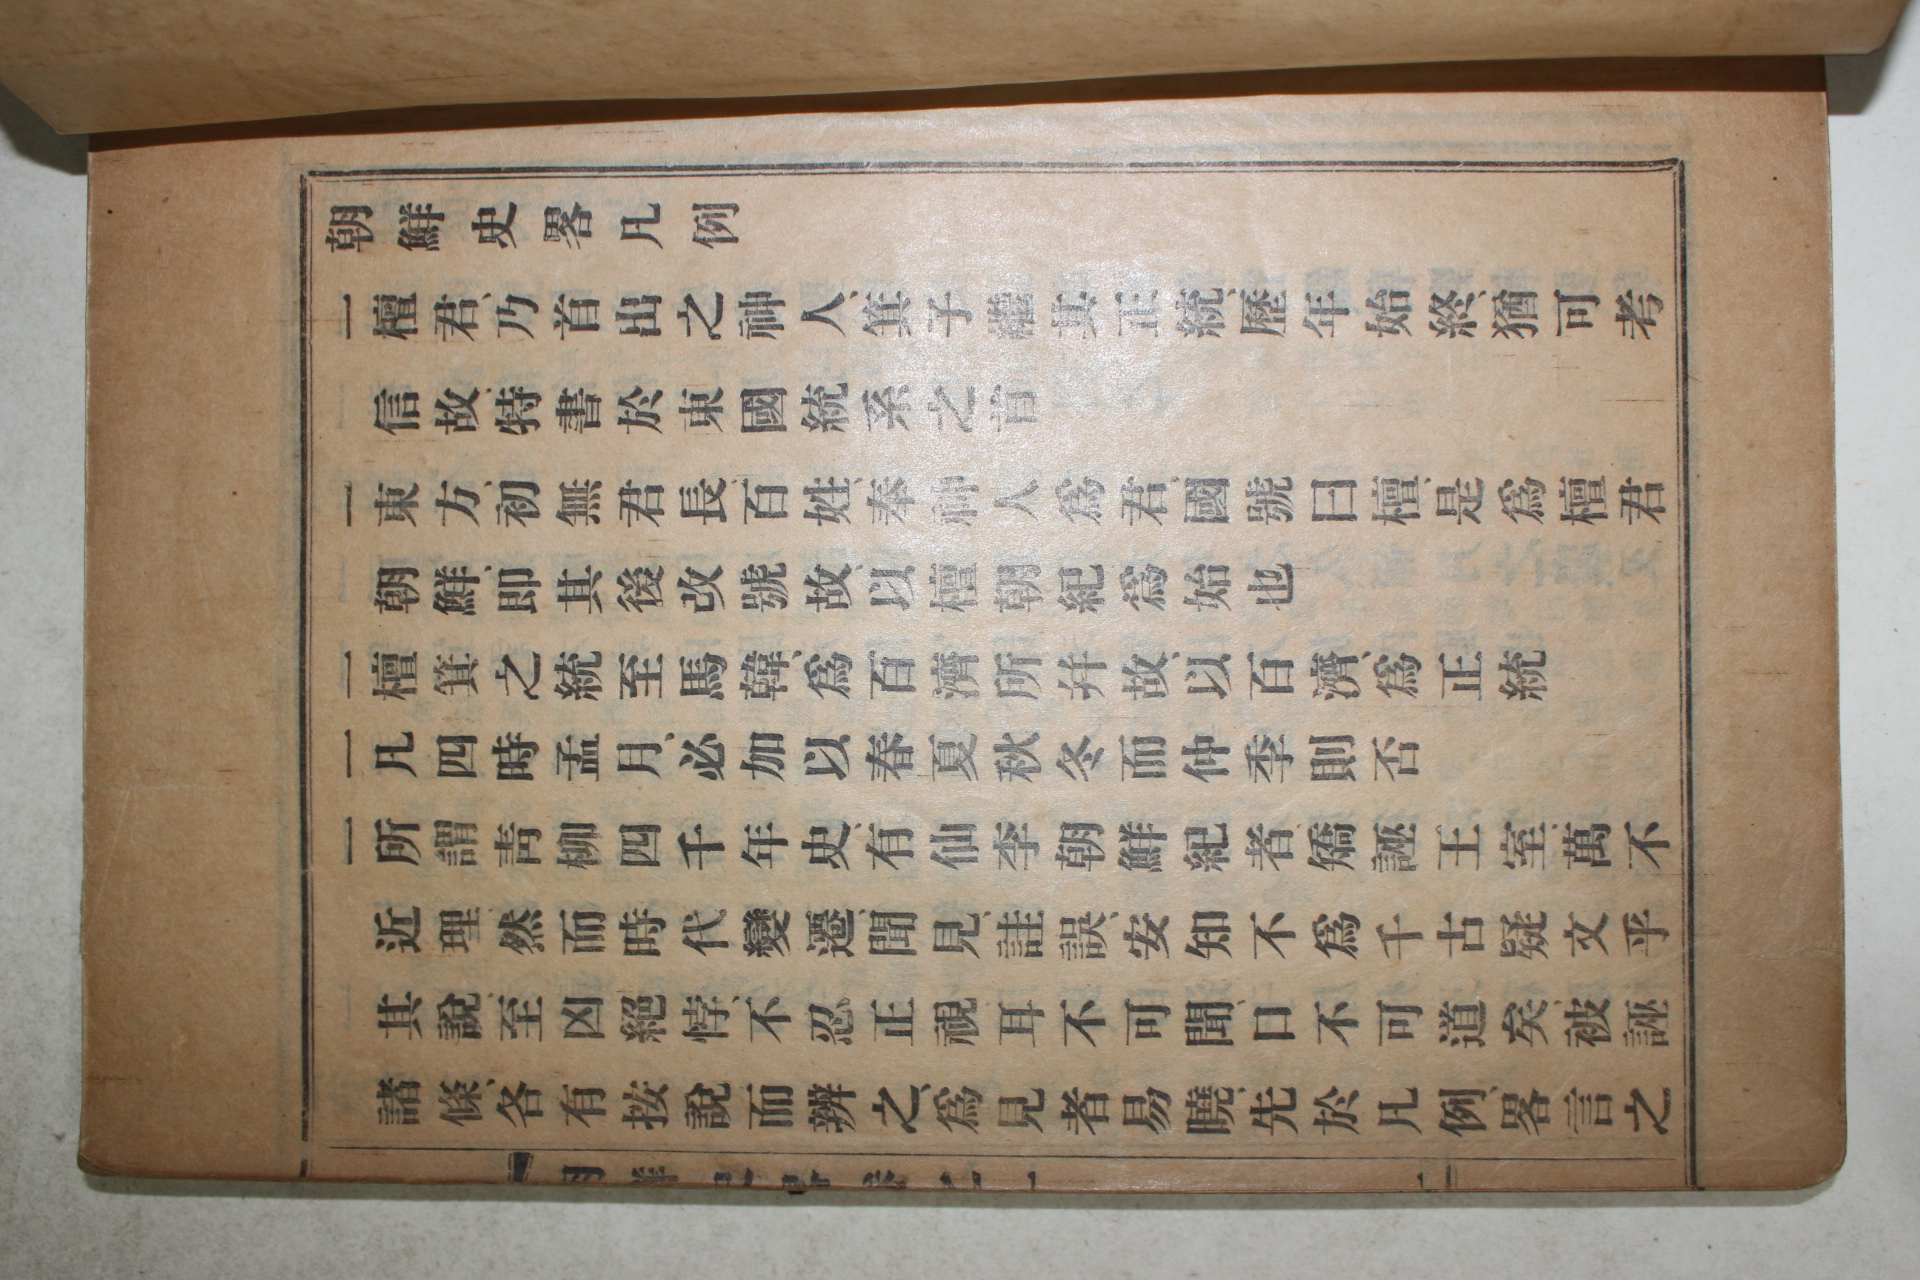 朝鮮史畧凡例
一檀君乃首出之神人箕子繼其正統歷年始終猶可考
信故特書於東國統系之首
一東方初無君長百姓奉神人爲君國號曰檀是爲檀君
朝鮮即其後改號故以檀朝紀爲始也
一檀箕之統至馬韓爲百濟所幷故以百濟爲正統
一凡四時孟月必加以春夏秋冬而仲季則否
一所謂靑柳四千年史有仙李朝鮮紀者矯誣王室萬不
近理然而時代變遷聞見詿誤安知不爲千古疑文乎
其說至凶絕悖不忍正視耳不可聞口不可道矣被誣
諸條各有按說而辨之爲見者易曉先於凡例畧言之